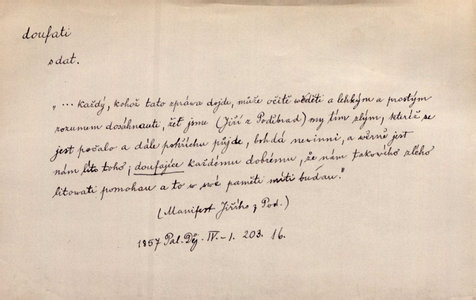 doufati
s dat.
„ ··· každý, kohož tato zpráva dojde, může očitě věděti a lehkým a prostým
rozumem dosáhnauti, žeť jsme (Jiří z Poděbrad) my tím zlým, kteréž se
jest počalo a dále pohříchu půjde, bohdá nevinni, a věrně jest
nám líto toho; doufajíce každému dobrému, že nám takového zlého
litovati pomohau a to w své paměti míti budau."
(Manifest Jiřího z Pod.)
1857 Pal. Děj. IV.–1. 203. 16.